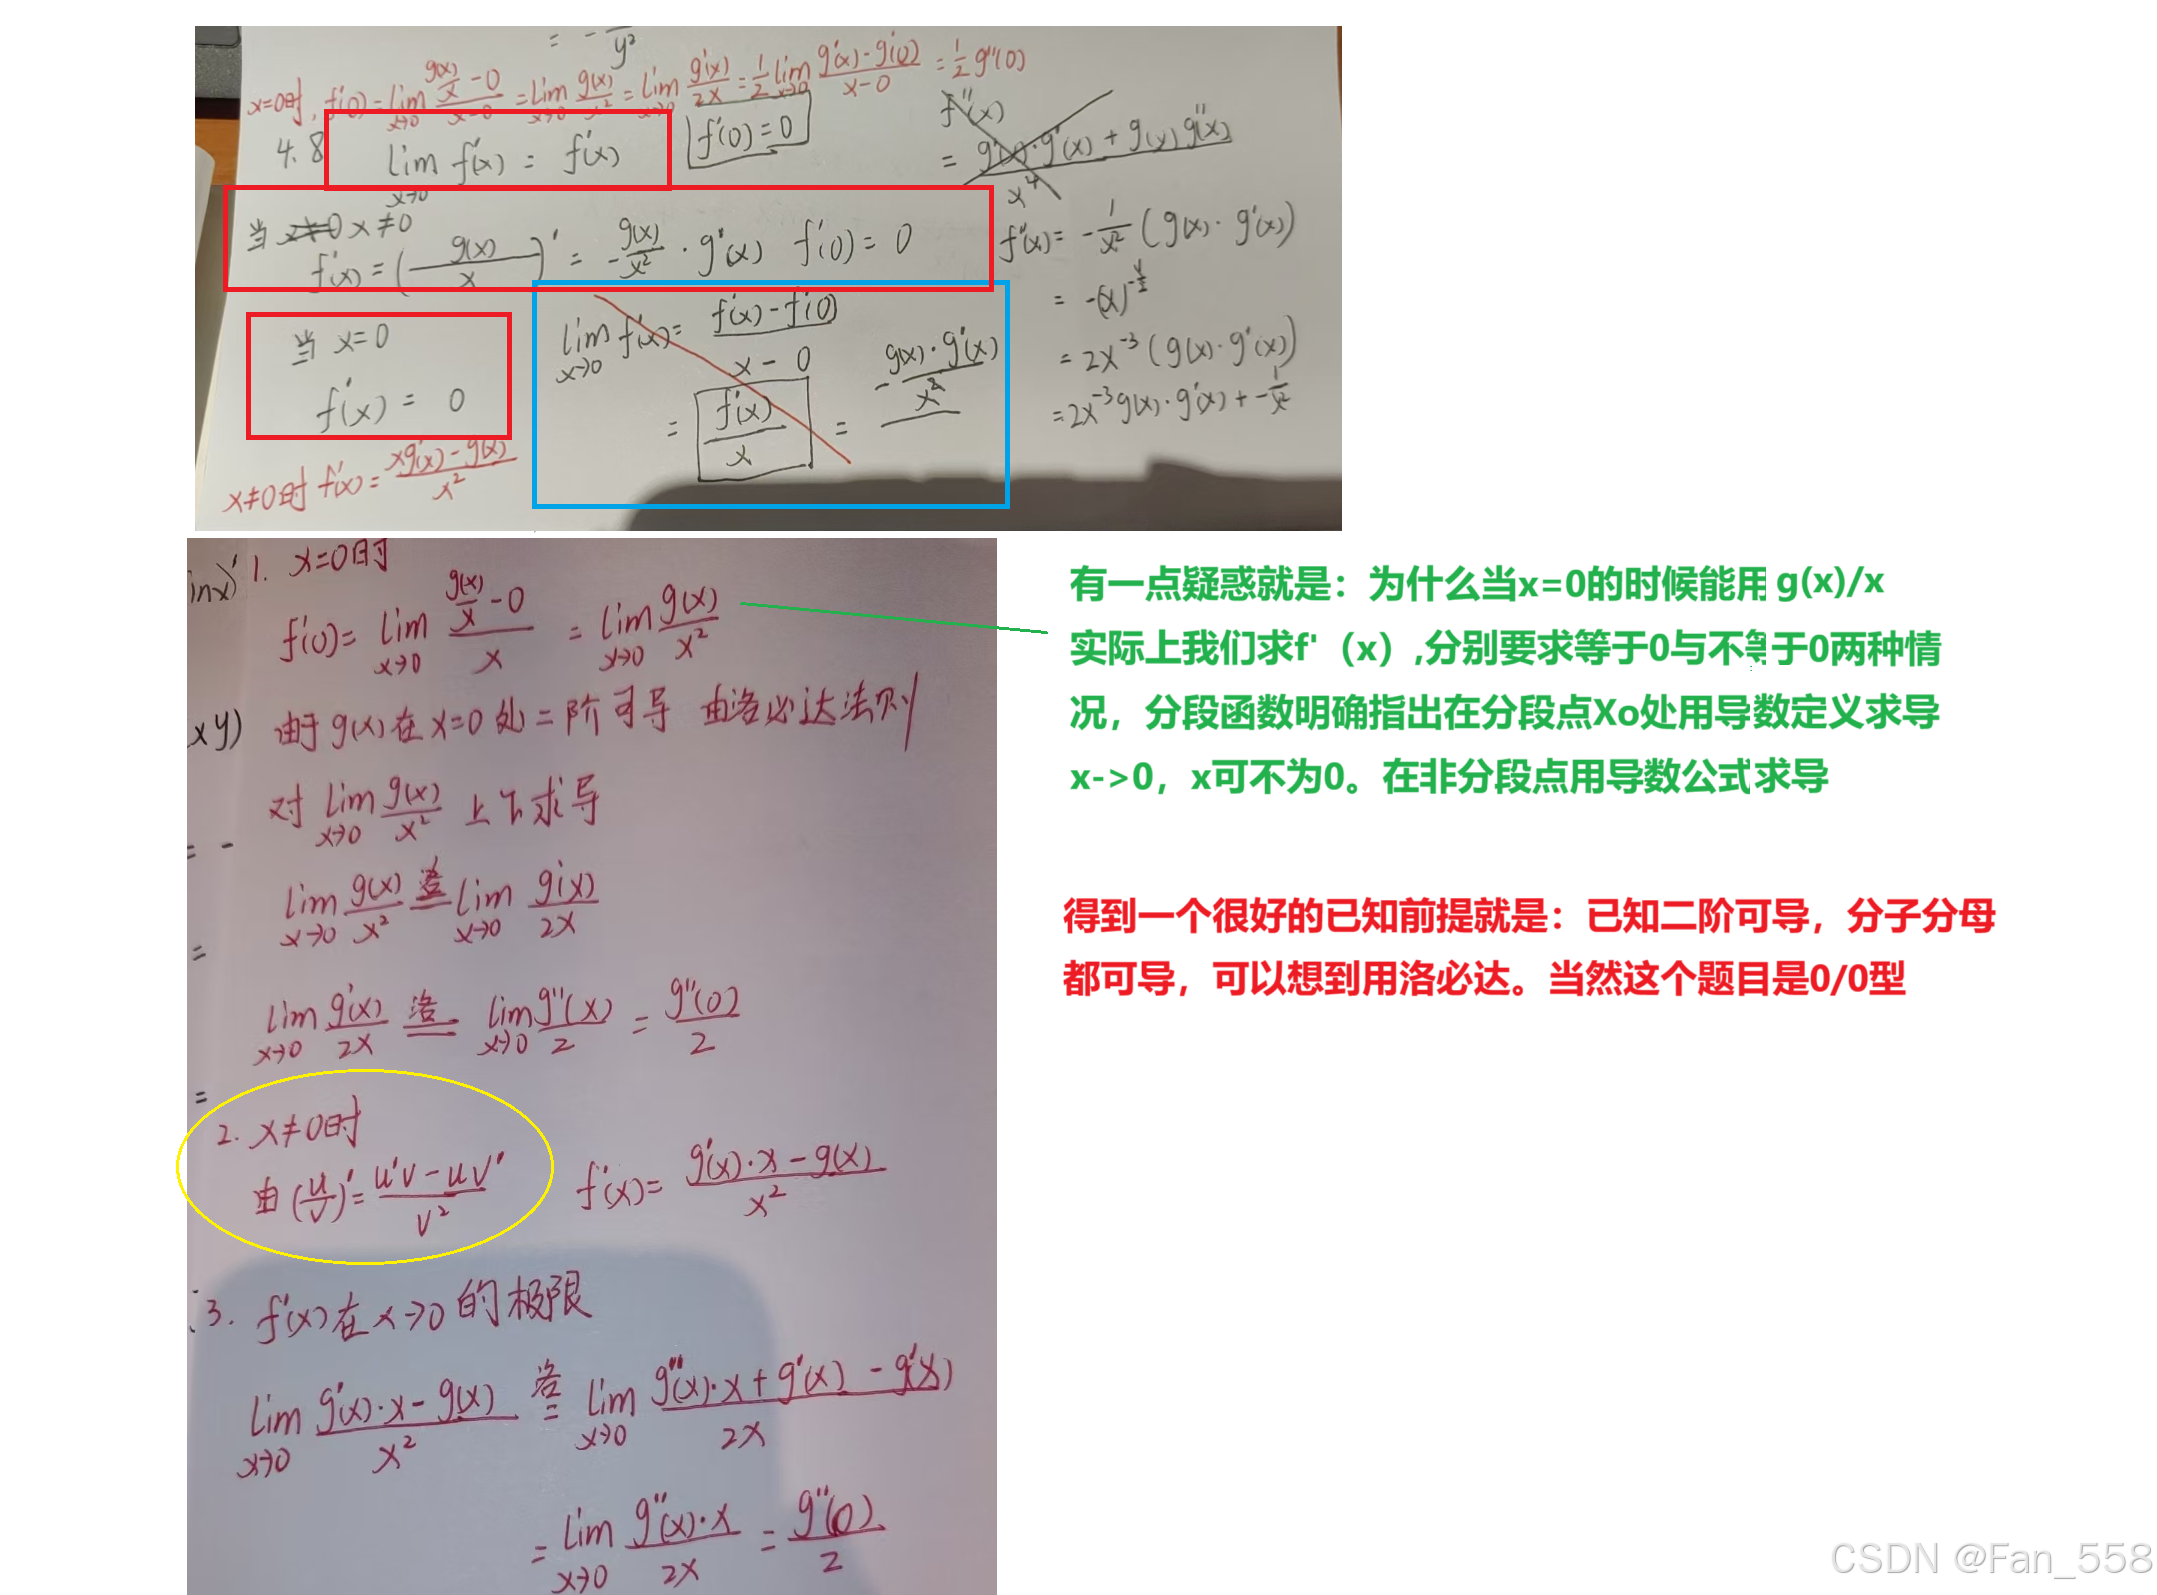 = -1/y²
x=0时, f'(0)=lim x→0 (g(x)/x -0)/(x-0) =lim x→0 g(x)/x² =lim x→0 g'(x)/2x =1/2 lim x→0 (g'(x)-g'(0))/(x-0) =1/2 g''(0)
4.8 lim x→0 f'(x) = f'(x) f'(0)=0
f''(x)
= (g'(x)·g'(x)+g(x)g''(x))/x⁴
当 x≠0
f'(x)=(g(x)/x)' = -g(x)/x² · g'(x) f'(0)=0
f''(x)= -1/x² (g(x)·g'(x))
当 x=0
f'(x) = 0
lim x→0 f'(x)= (f'(x)-f'(0))/(x-0)
= f'(x)/x = -g(x)·g'(x)/x²
= 2x⁻³(g(x)·g'(x))
=2x⁻³g(x)·g'(x)+-1/x²
x≠0时 f'(x)=(xg'(x)-g(x))/x²
inx)'
1. x=0时
f'(0)=lim x→0 (g(x)/x -0)/x = lim x→0 g(x)/x²
xy)
由于g(x)在x=0处二阶可导 由洛必达法则
对 lim x→0 g(x)/x² 上下求导
= -
lim x→0 g(x)/x² 洛= lim x→0 g'(x)/2x
=
lim x→0 g'(x)/2x 洛= lim x→0 g''(x)/2 = g''(0)/2
=
2. x≠0时
由(u/v)'=(u'v-uv')/v² f'(x)=(g'(x)·x-g(x))/x²
3. f'(x)在x→0的极限
lim x→0 (g'(x)·x-g(x))/x² 洛= lim x→0 (g''(x)·x+g'(x)-g'(x))/2x
= lim x→0 g''(x)·x/2x = g''(0)/2
有一点疑惑就是：为什么当x=0的时候能用 g(x)/x
实际上我们求f'（x）,分别要求等于0与不等于0两种情
况，分段函数明确指出在分段点Xo处用导数定义求导
x->0，x可不为0。在非分段点用导数公式求导
得到一个很好的已知前提就是：已知二阶可导，分子分母
都可导，可以想到用洛必达。当然这个题目是0/0型
CSDN @Fan_558